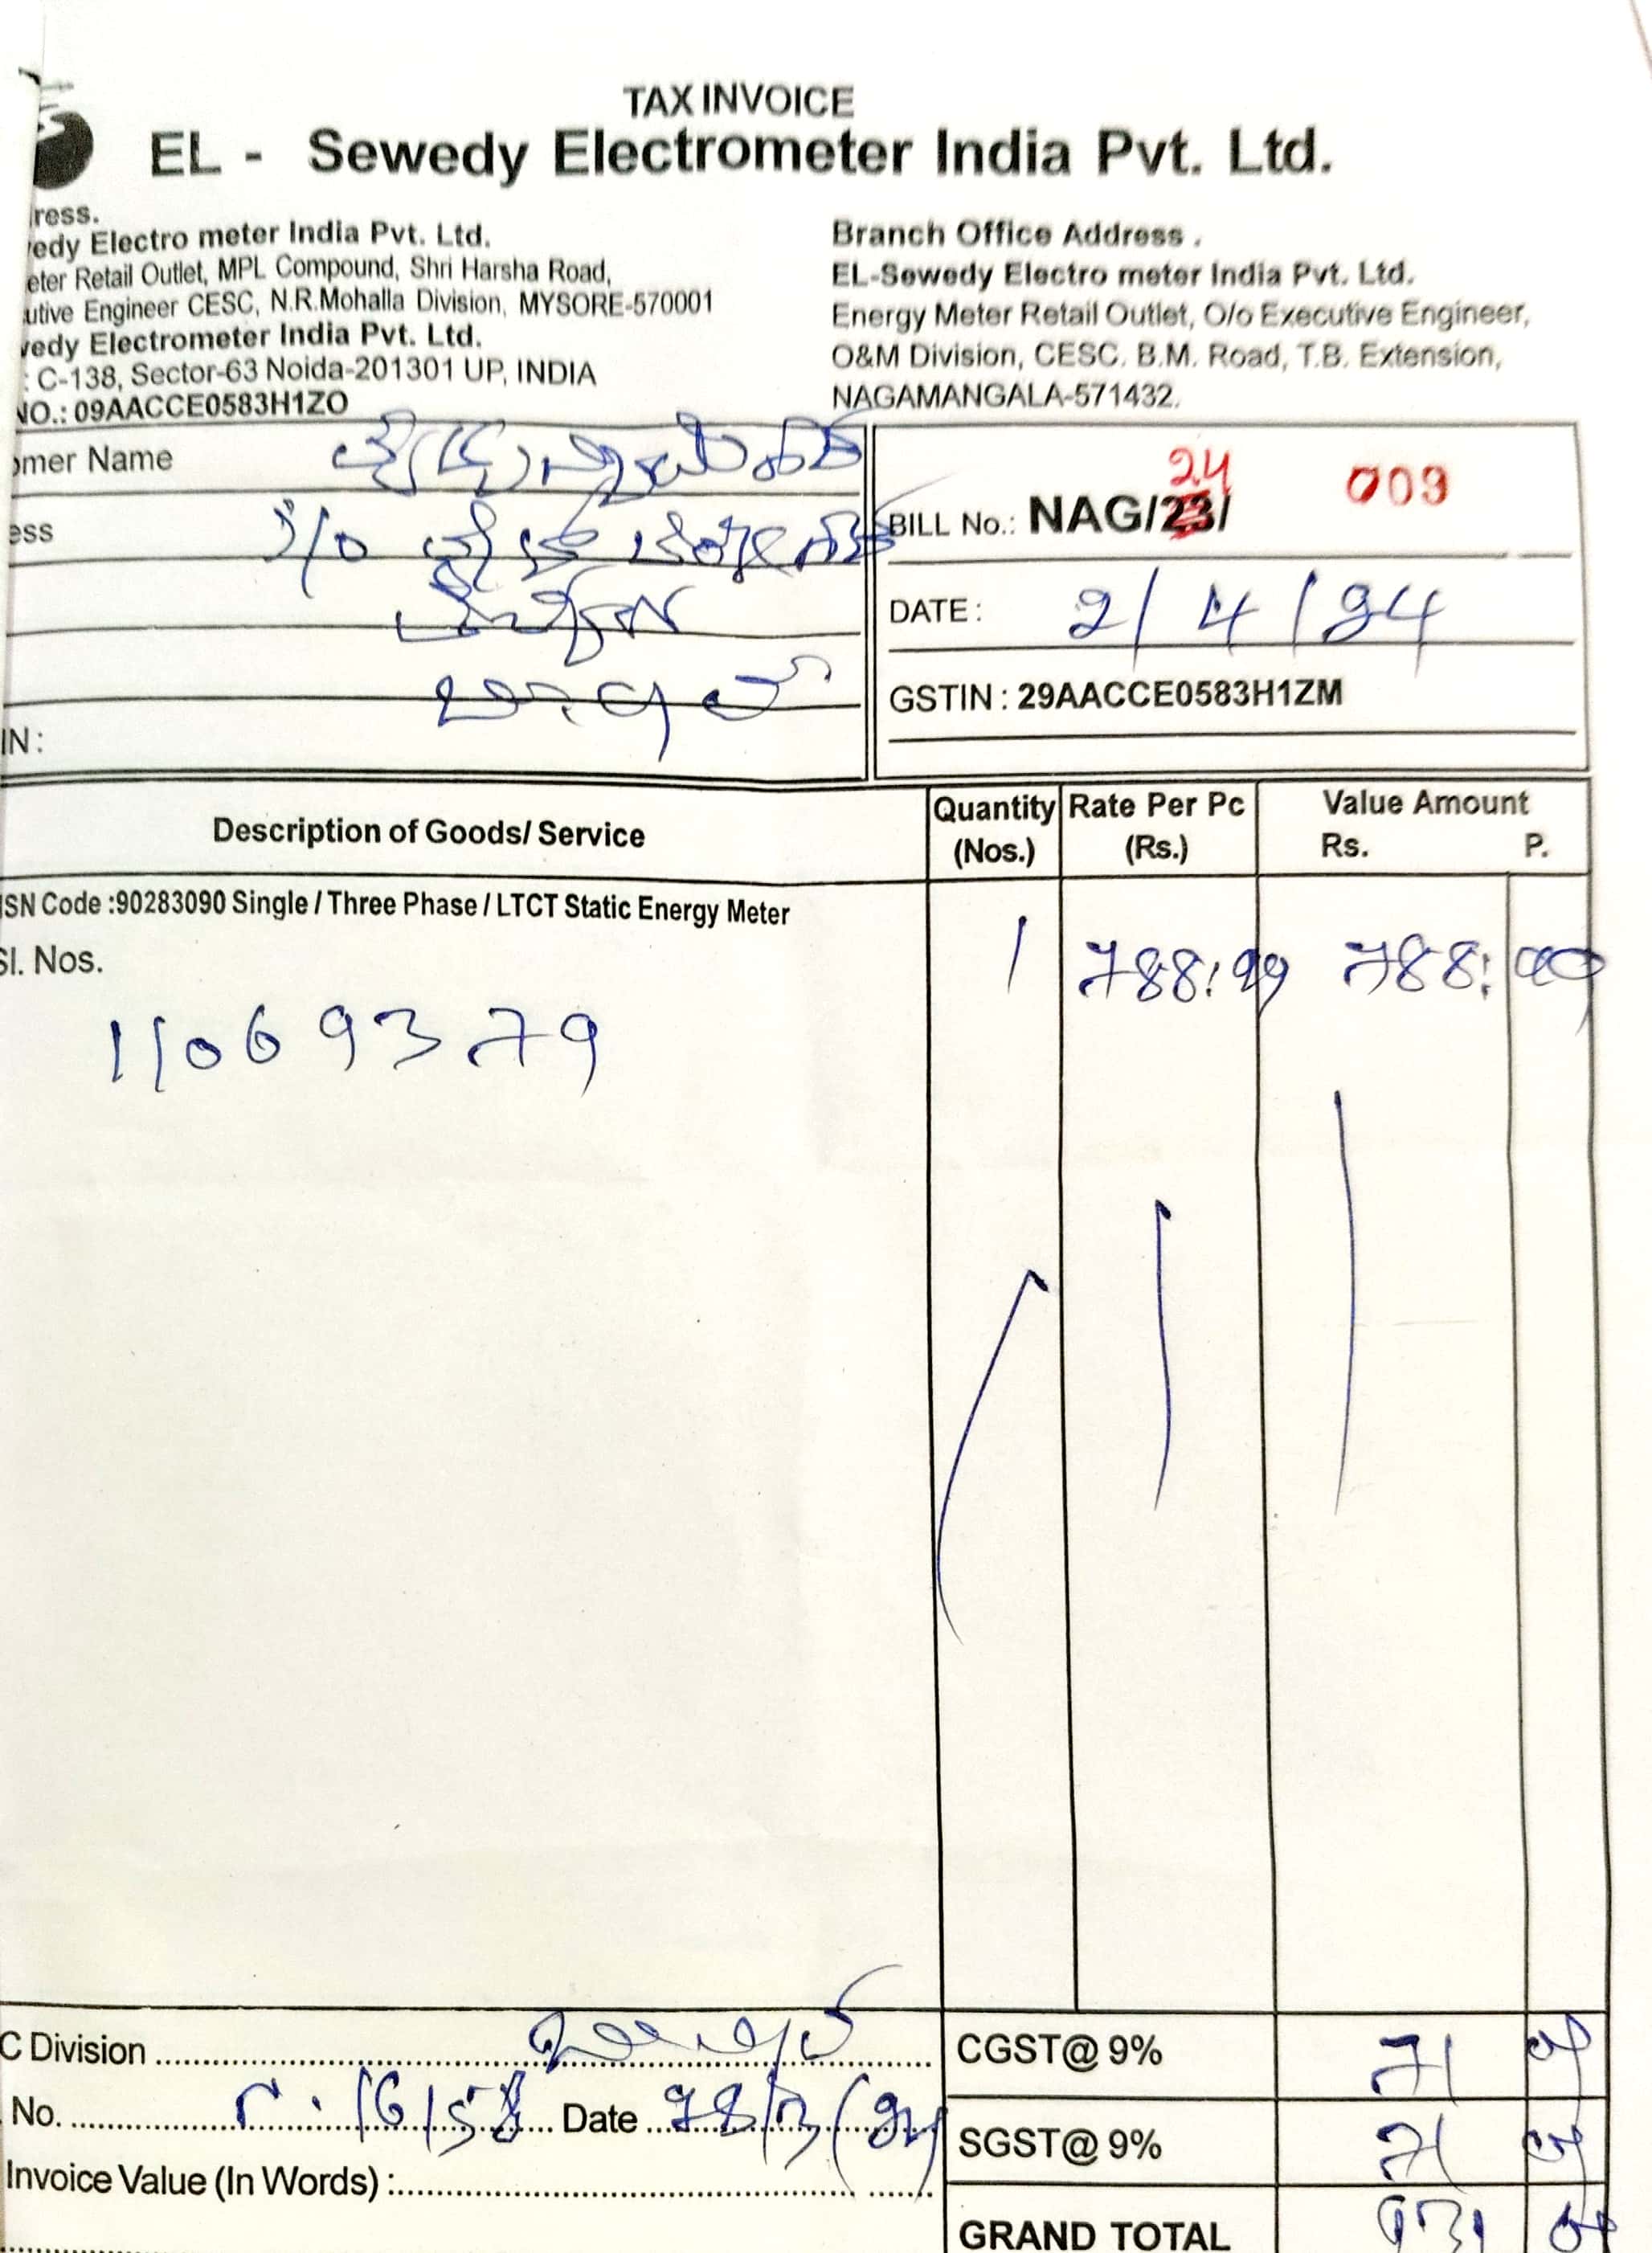 TAX INVOICE
EL - Sewedy Electrometer India Pvt. Ltd.
ress.
edy Electro meter India Pvt. Ltd.
eter Retail Outlet, MPL Compound, Shri Harsha Road,
utive Engineer CESC, N.R.Mohalla Division, MYSORE-570001
edy Electrometer India Pvt. Ltd.
: C-138, Sector-63 Noida-201301 UP, INDIA
NO.: 09AACCE0583H1ZO
Branch Office Address .
EL-Sewedy Electro meter India Pvt. Ltd.
Energy Meter Retail Outlet, O/o Executive Engineer,
O&M Division, CESC. B.M. Road, T.B. Extension,
NAGAMANGALA-571432.
omer Name
ess
IN :
24
BILL No.: NAG/23/ 009
DATE : 2/4/24
GSTIN : 29AACCE0583H1ZM
Description of Goods/ Service Quantity (Nos.) Rate Per Pc (Rs.) Value Amount Rs. P.
SN Code :90283090 Single / Three Phase / LTCT Static Energy Meter
Sl. Nos. 1 788:99 788:
11069379
C Division
CGST@ 9% 71
No. Date
SGST@ 9% 71
Invoice Value (In Words) :
GRAND TOTAL 931